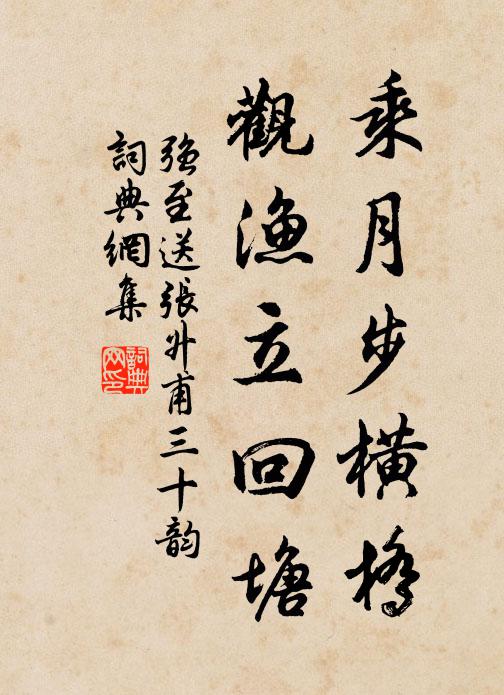 乘月步橫橋
觀漁立回塘
強至送張升甫三十韵
詞典網集
詞典網印